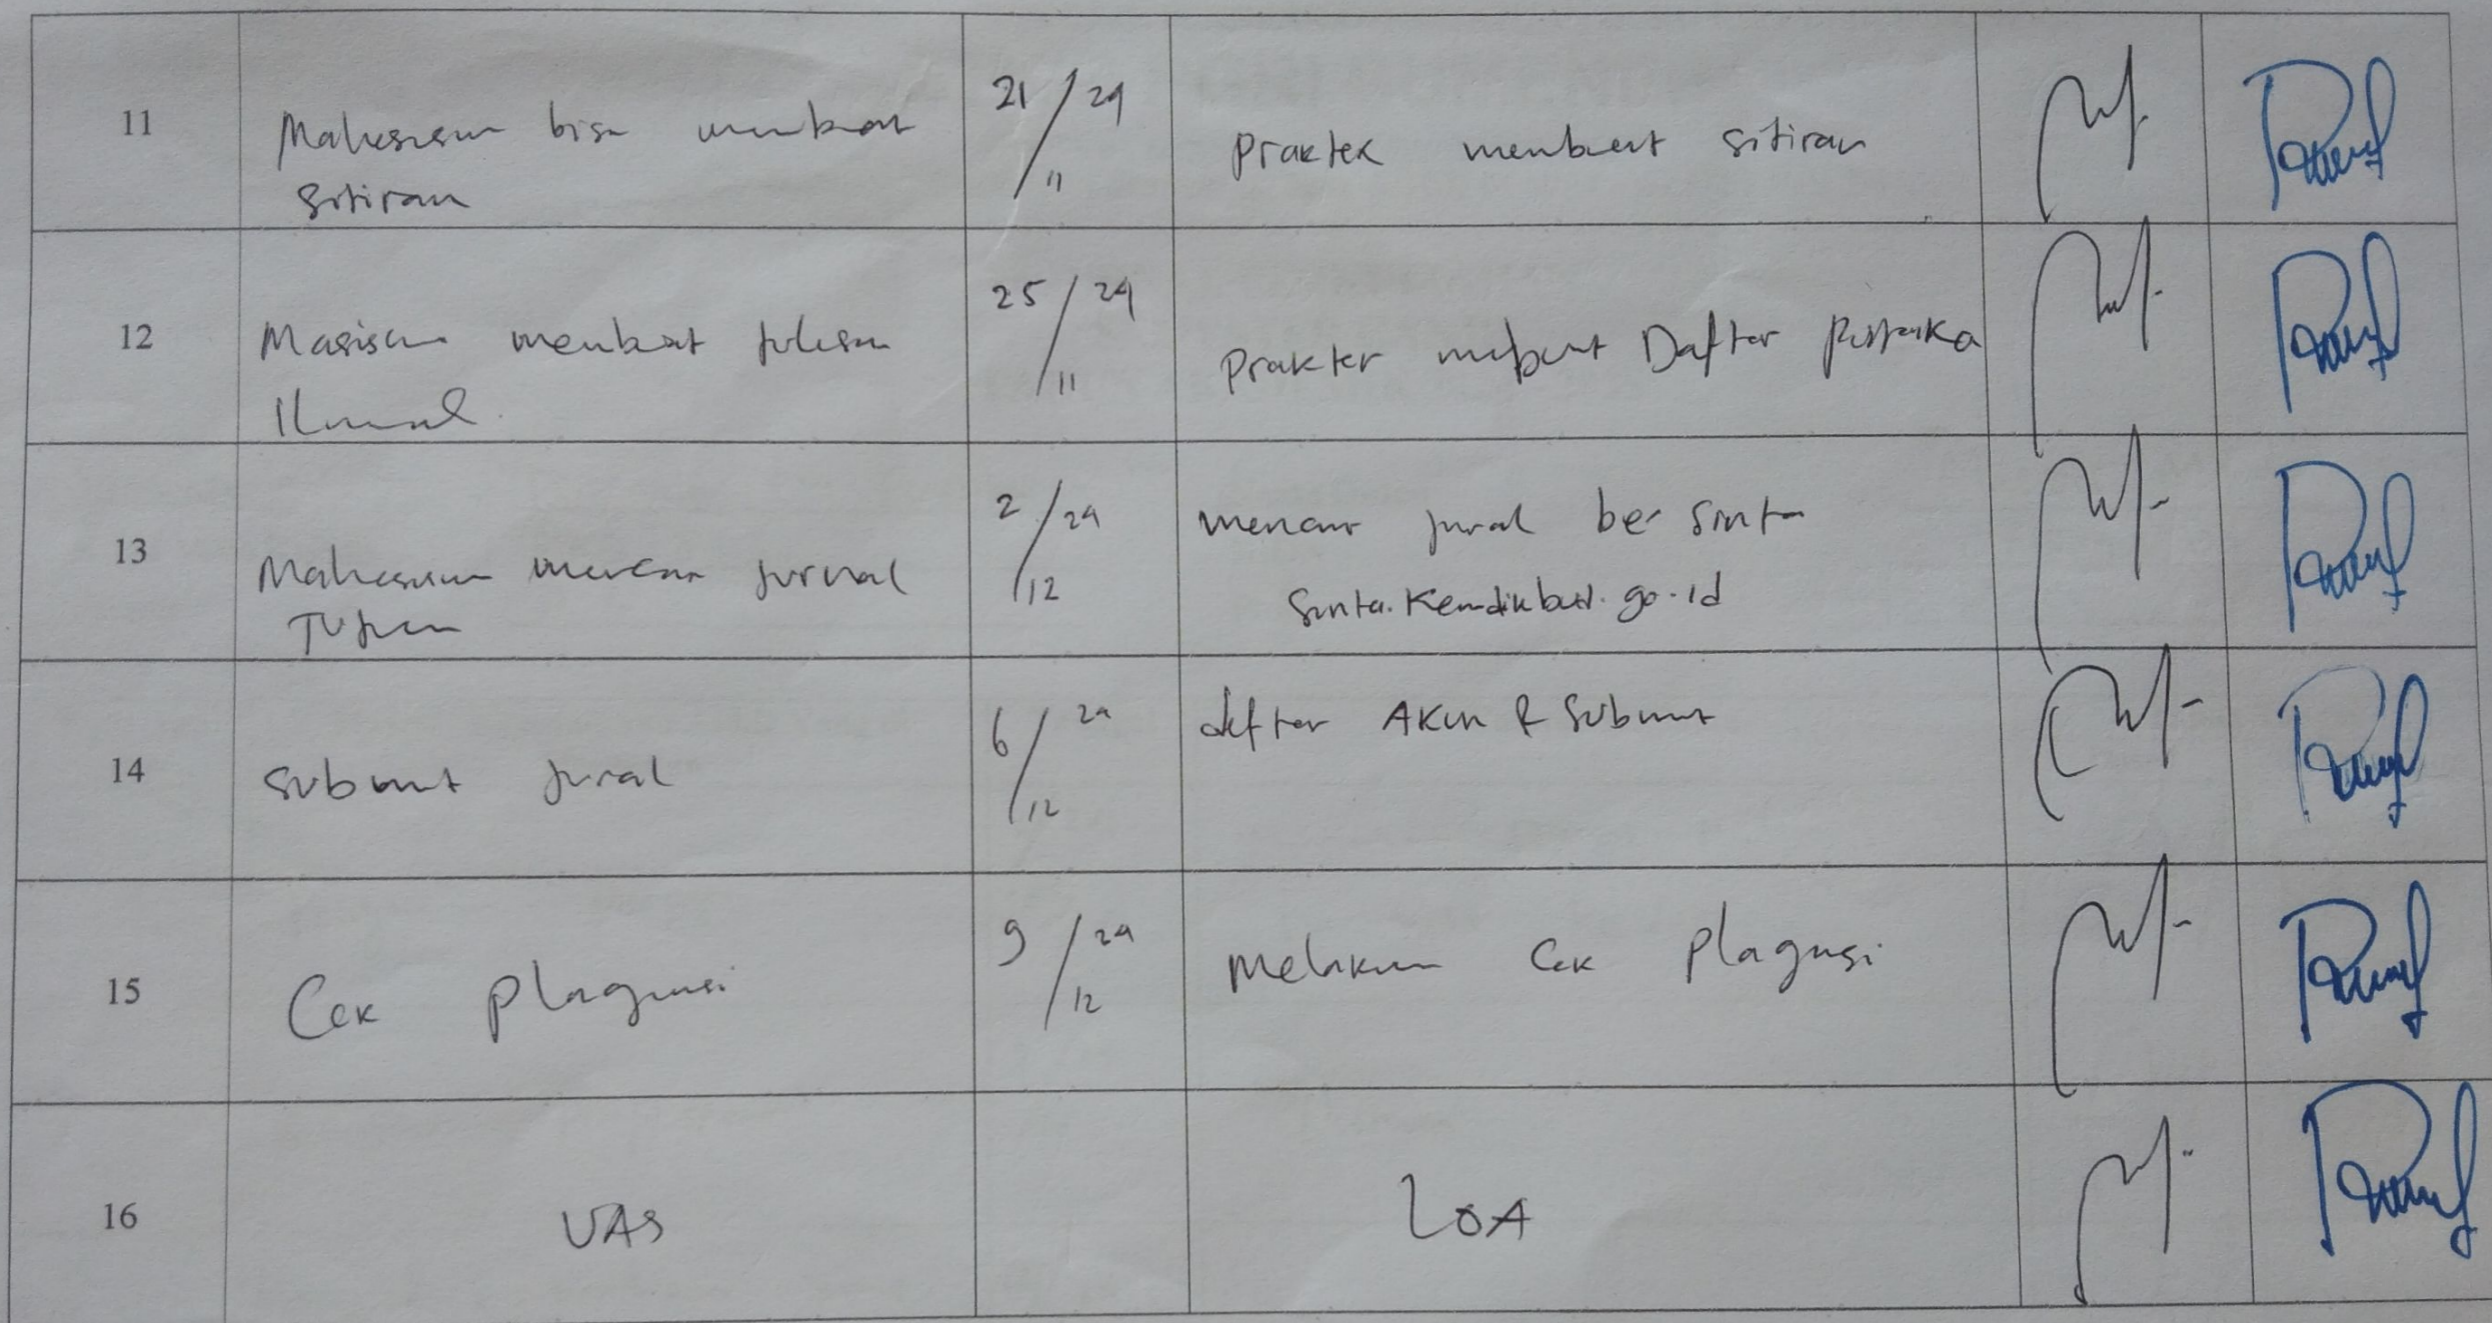 11
Mahasiswa bisa membuat
Sitiran
21/11 24
Praktek membuat sitiran
12
membuat tulisan
Ilmiah
25/11 24
Praktek Daftar Pustaka
13
Mahasiswa mencari jurnal
Tujuan
2/12 24
mencari jurnal ber sinta
Sinta.Kemdikbud.go.id
14
Submit jurnal
6/12 24
daftar Akun & Submit
15
Cek Plagiasi
9/12 24
Melakukan Cek Plagiasi
16
UAS
LOA